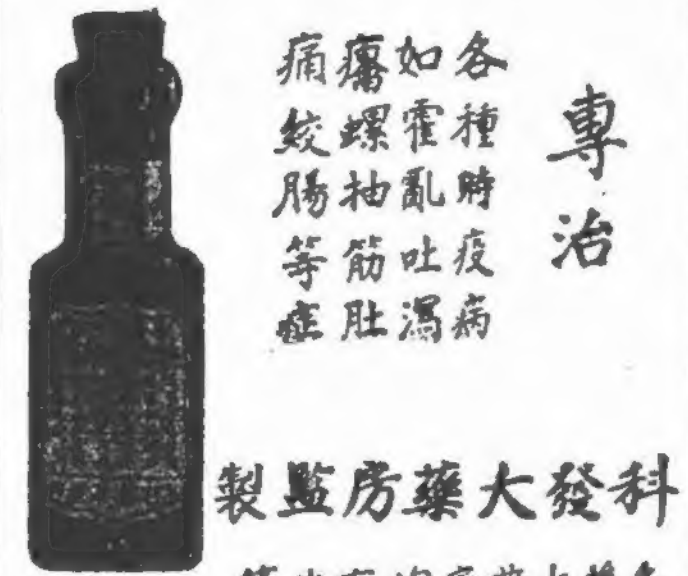 專治
各種時疫病
如霍亂吐瀉
癟螺抽筋肚
痛絞腸等症
科發大藥房監製